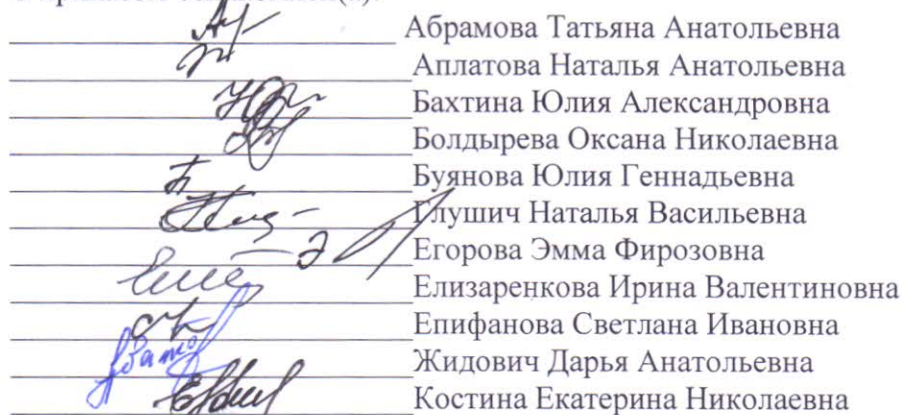 Абрамова Татьяна Анатольевна
Аплатова Наталья Анатольевна
Бахтина Юлия Александровна
Болдырева Оксана Николаевна
Буянова Юлия Геннадьевна
Глушич Наталья Васильевна
Егорова Эмма Фирозовна
Елизаренкова Ирина Валентиновна
Епифанова Светлана Ивановна
Жидович Дарья Анатольевна
Костина Екатерина Николаевна